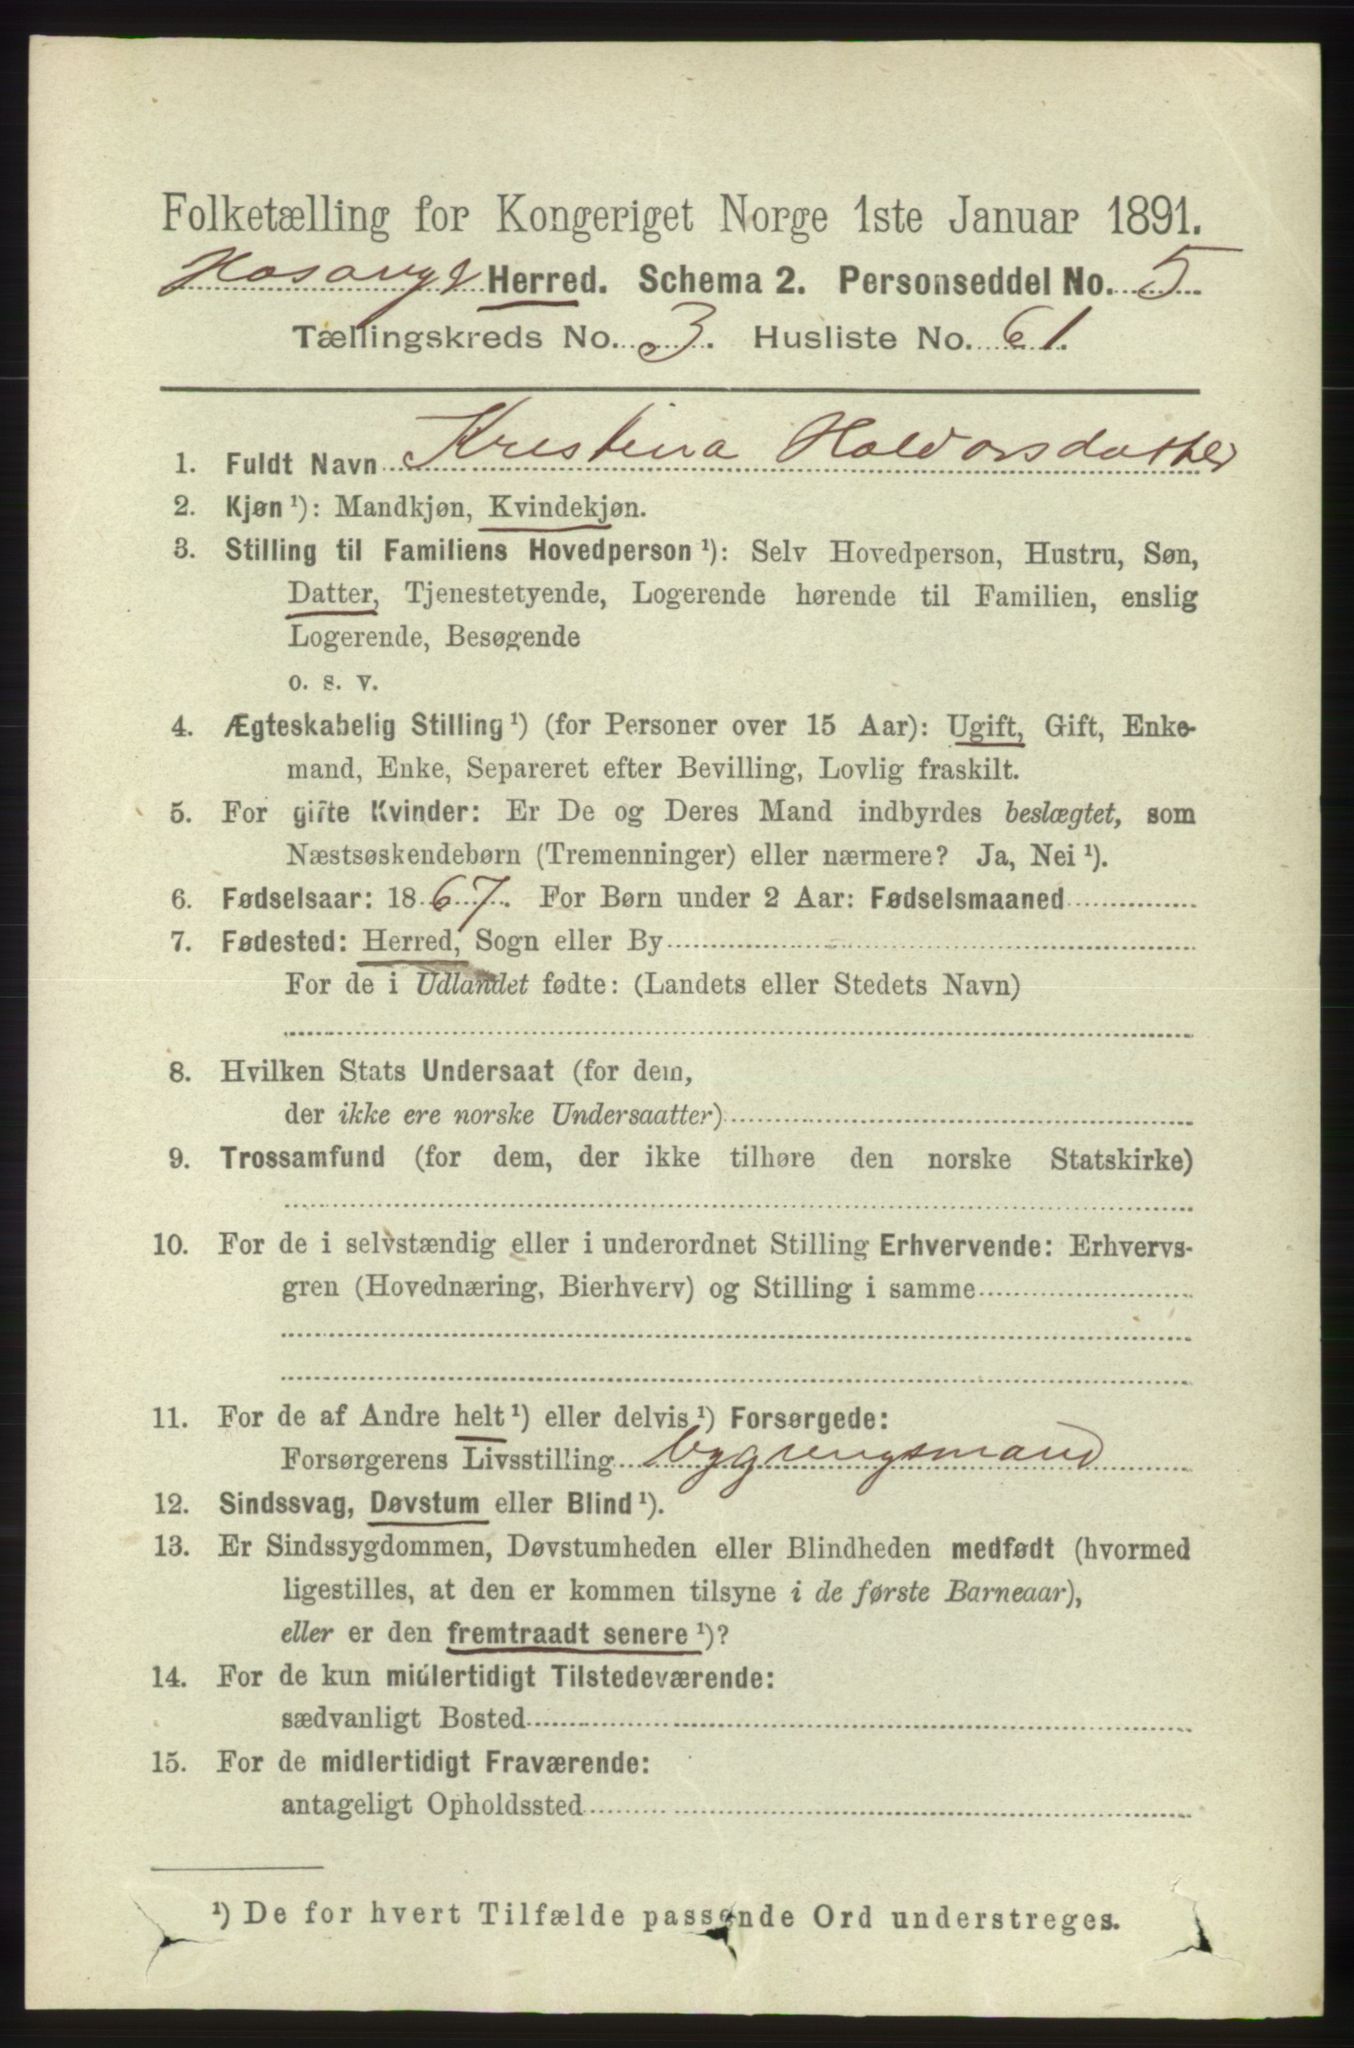 Folketælling for Kongeriget Norge 1ste Januar 1891.
Hosanger Herred. Schema 2. Personseddel No. 5
Tællingskreds No. 3. Husliste No. 61.
1. Fuldt Navn Kristina Haldorsdatter
2. Kjøn ¹): Mandkjøn, Kvindekjøn.
3. Stilling til Familiens Hovedperson ¹): Selv Hovedperson, Hustru, Søn,
Datter, Tjenestetyende, Logerende hørende til Familien, enslig
Logerende, Besøgende
o. s. v.
4. Ægteskabelig Stilling ¹) (for Personer over 15 Aar): Ugift, Gift, Enke-
mand, Enke, Separeret efter Bevilling, Lovlig fraskilt.
5. For gifte Kvinder: Er De og Deres Mand indbyrdes beslægtet, som
Næstsøskendebørn (Tremenninger) eller nærmere? Ja, Nei ¹).
6. Fødselsaar: 1867. For Børn under 2 Aar: Fødselsmaaned
7. Fødested: Herred, Sogn eller By
For de i Udlandet fødte: (Landets eller Stedets Navn)
8. Hvilken Stats Undersaat (for dem,
der ikke ere norske Undersaatter)
9. Trossamfund (for dem, der ikke tilhøre den norske Statskirke)
10. For de i selvstændig eller i underordnet Stilling Erhvervende: Erhvervs-
gren (Hovednæring, Bierhverv) og Stilling i samme
11. For de af Andre helt ¹) eller delvis ¹) Forsørgede:
Forsørgerens Livsstilling bygningsmand
12. Sindssvag, Døvstum eller Blind ¹).
13. Er Sindssygdommen, Døvstumheden eller Blindheden medfødt (hvormed
ligestilles, at den er kommen tilsyne i de første Barneaar),
eller er den fremtraadt senere ¹)?
14. For de kun midlertidigt Tilstedeværende:
sædvanligt Bosted
15. For de midlertidigt Fraværende:
antageligt Opholdssted
¹) De for hvert Tilfælde passende Ord understreges.